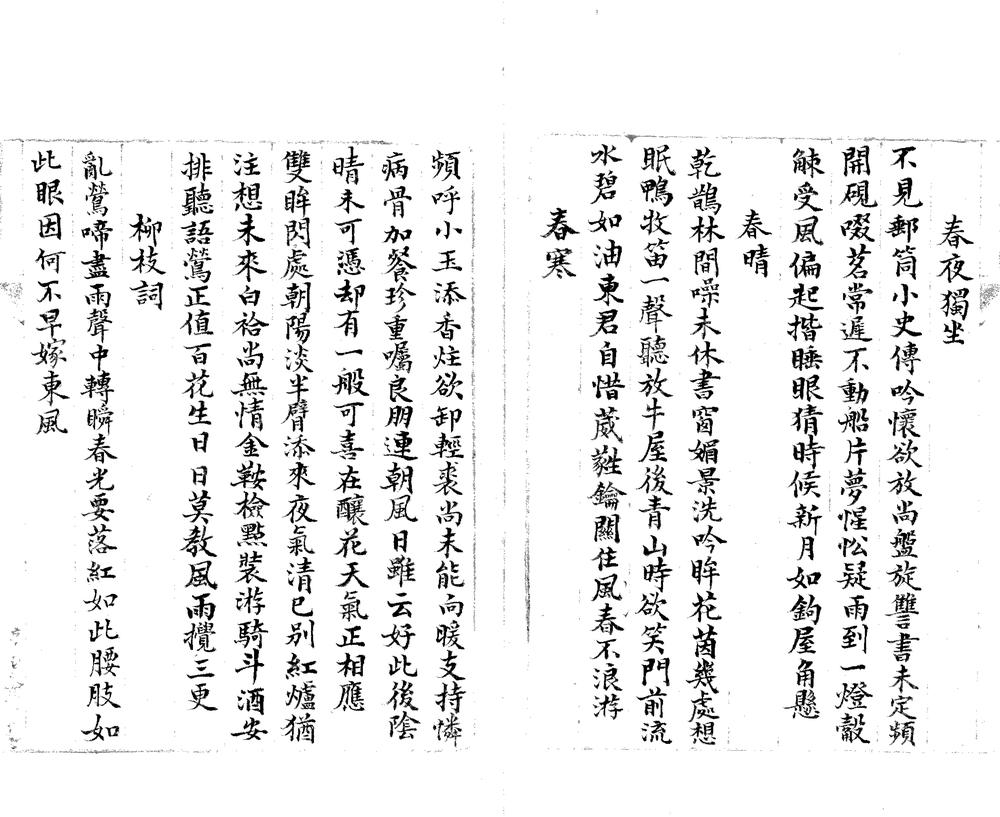 春夜獨坐
不見郵筒小史傳吟懷欲放尚盤旋讐書未定頻
開硯啜茗常遲不動船片夢惺忪疑雨到一燈觳
觫受風偏起揩睡眼猜時候新月如鉤屋角懸
春晴
乾鵲林間噪未休書窗媚景洗吟眸花茵幾處想
眠鴨牧笛一聲聽放牛屋後青山時欲笑門前流
水碧如油東君自惜葳蕤鑰關住風春不浪游
春寒
頻呼小玉添香炷欲卸輕裘尚未能向暖支持憐
病骨加餐珍重囑良朋連朝風日雖云好此後陰
晴未可憑却有一般可喜在釀花天氣正相應
雙眸閃處朝陽淡半臂添來夜氣清已别紅爐猶
注想未來白袷尚無情金鞍檢點裝游騎斗酒安
排聽語鶯正值百花生日日莫教風雨攪三更
柳枝詞
亂鶯啼盡雨聲中轉瞬春光要落紅如此腰肢如
此眼因何不早嫁東風